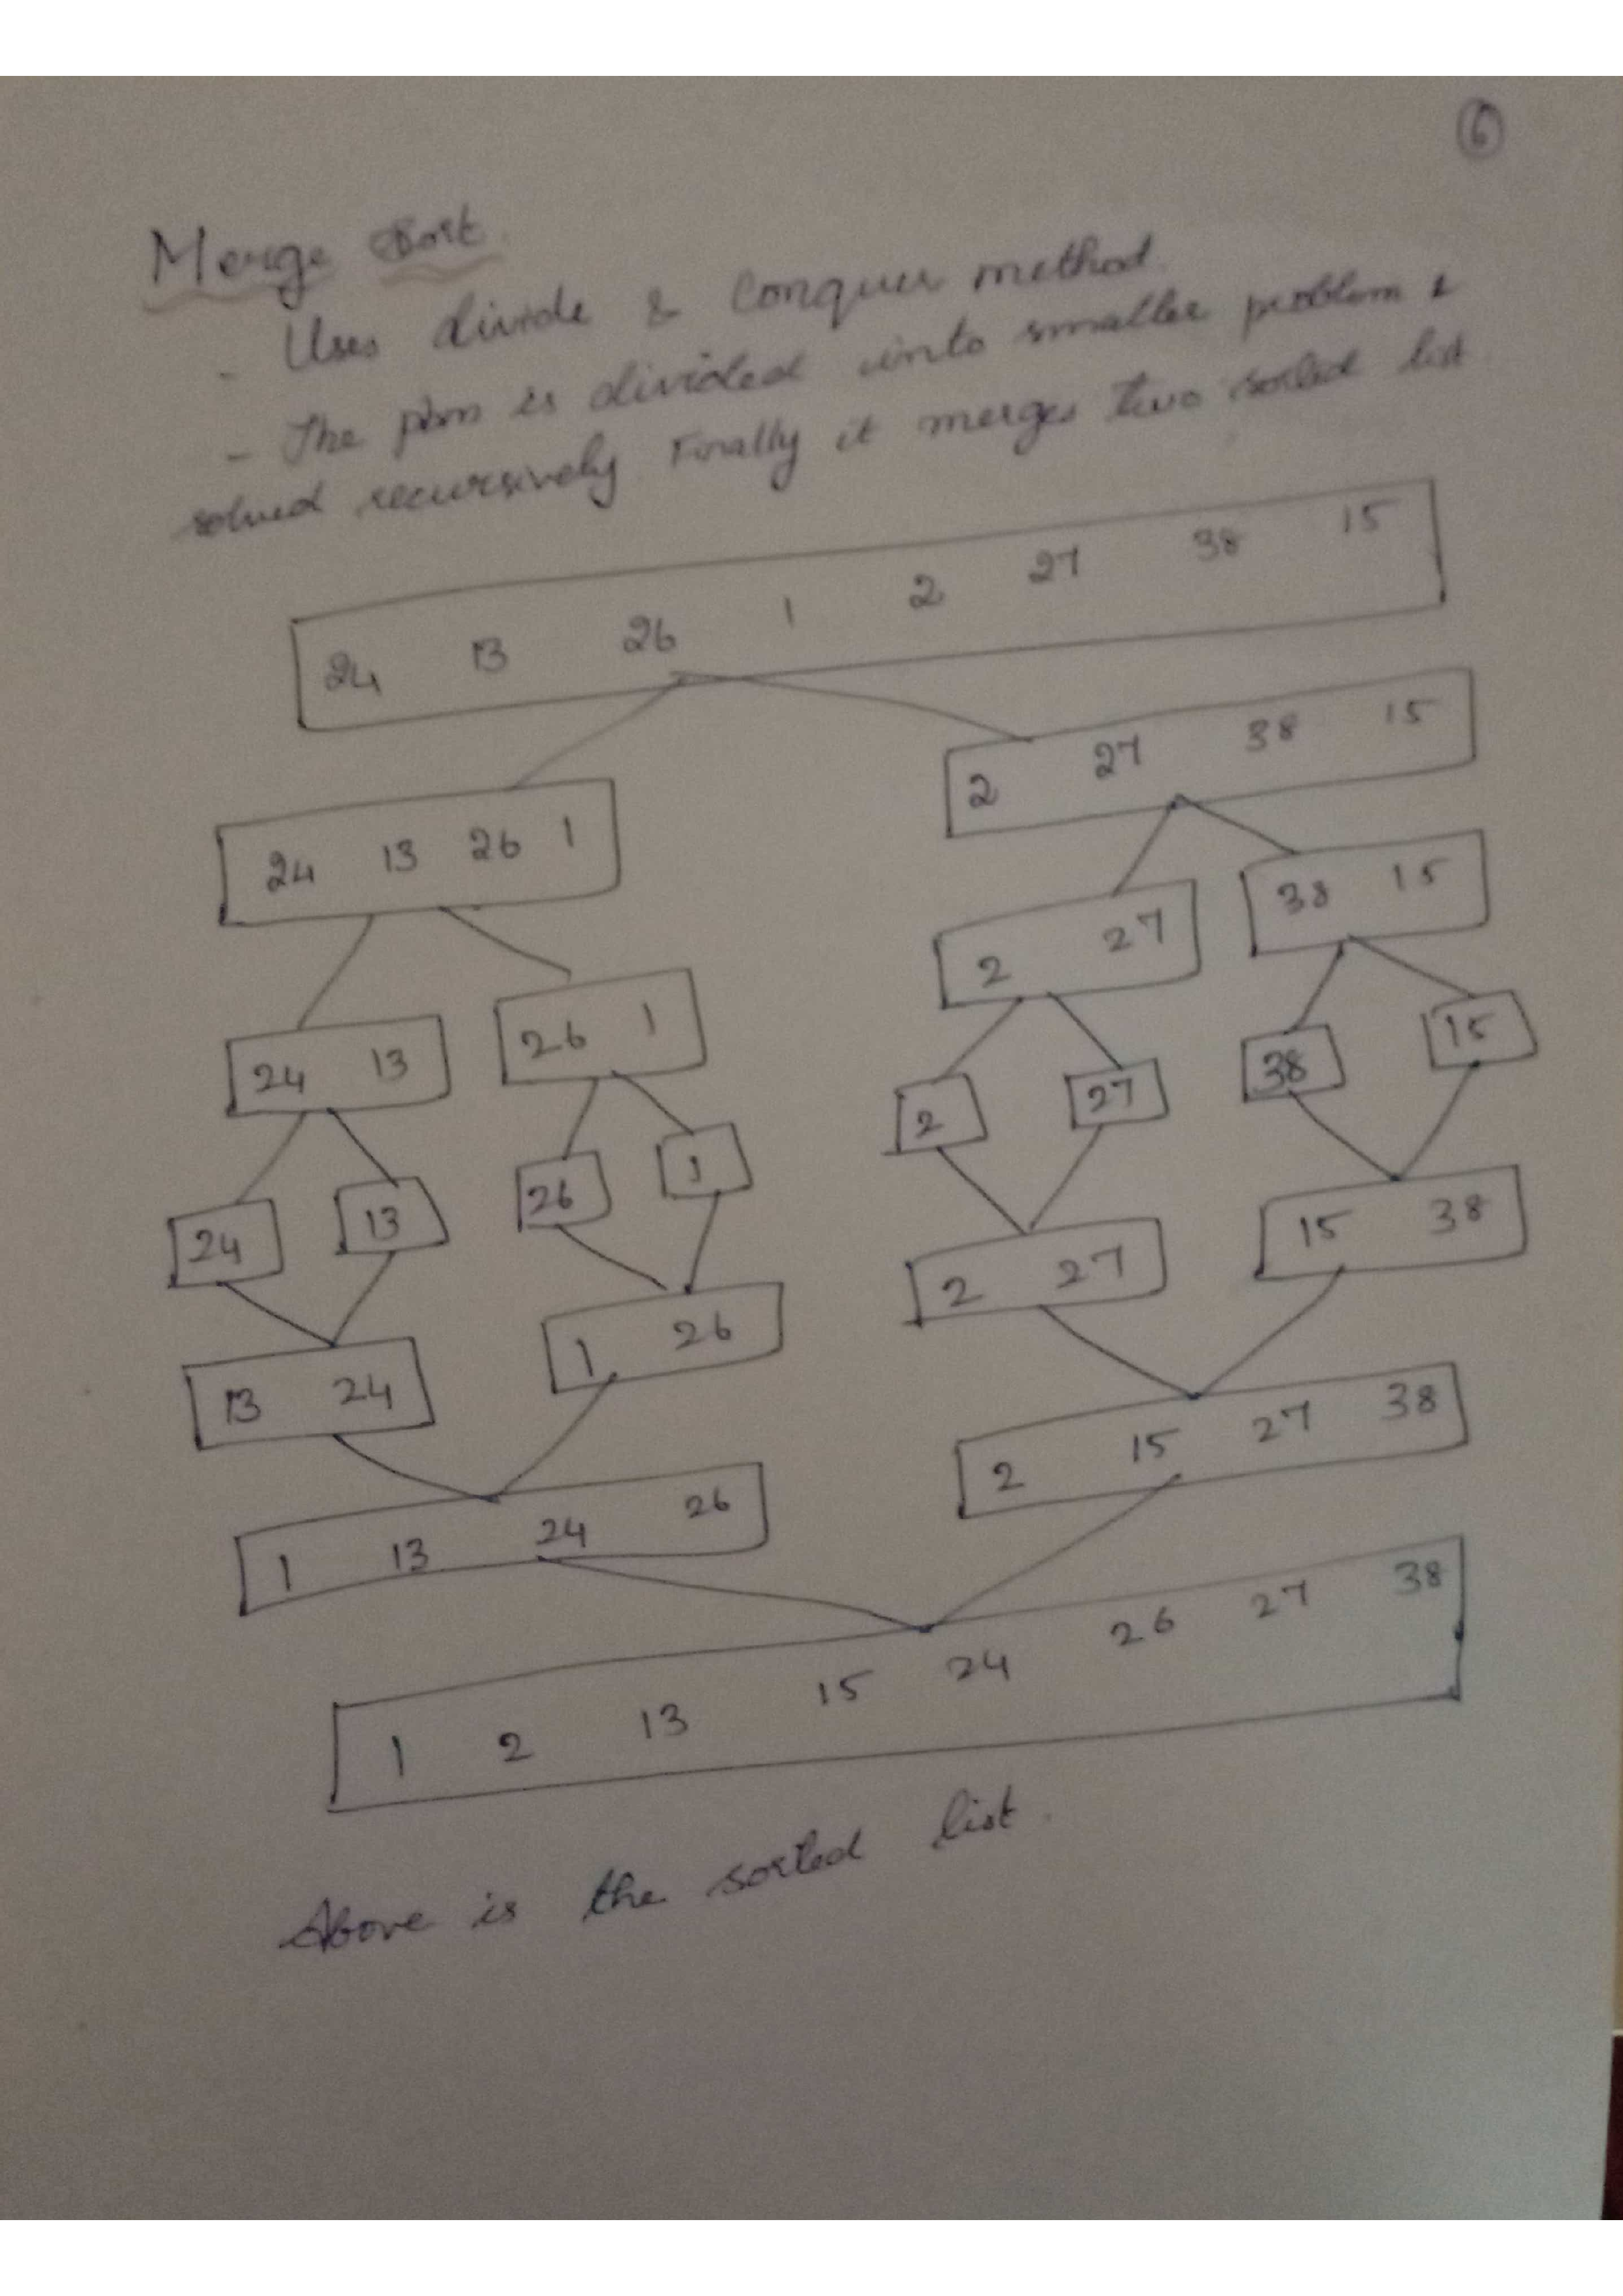 6
Merge Sort.
- Uses divide & Conquer method.
- The pbm is divided into smaller problem &
solved recursively. Finally it merges two sorted list
24 13 26 1 2 27 38 15
24 13 26 1
2 27 38 15
24 13
26 1
2 27
38 15
24
13
26
1
2
27
38
15
13 24
1 26
2 27
15 38
1 13 24 26
2 15 27 38
1 2 13 15 24 26 27 38
Above is the sorted list.